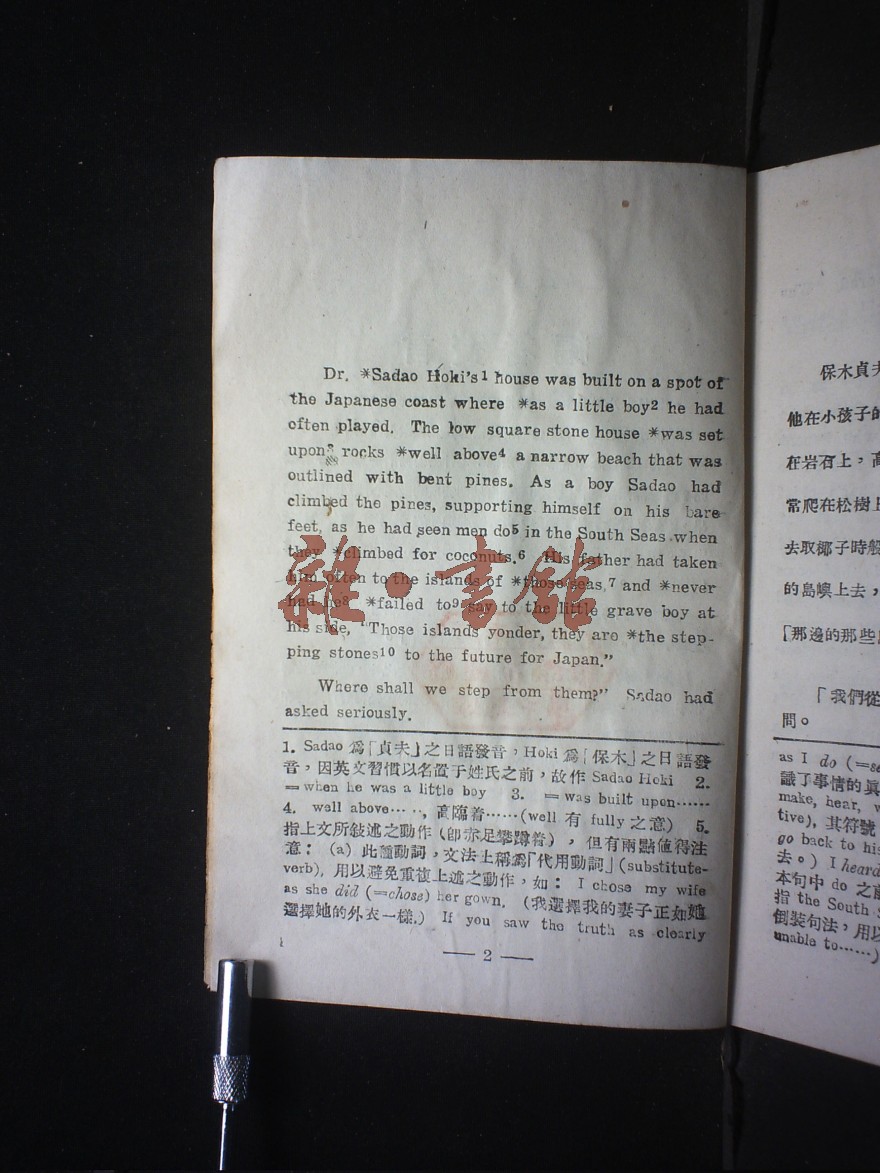 Dr. *Sadao Hoki's1 house was built on a spot of
the Japanese coast where *as a little boy2 he had
often played. The low square stone house *was set
upon3 rocks *well above4 a narrow beach that was
outlined with bent pines. As a boy Sadao had
climbed the pines, supporting himself on his bare
feet, as he had seen men do5 in the South Seas when
they *climbed for coconuts.6 His father had taken
him often to the islands of *those seas,7 and *never
had he8 *failed to9 say to the little grave boy at
his side, "Those islands yonder, they are *the step-
ping stones10 to the future for Japan."
Where shall we step from them?" Sadao had
asked seriously.
1. Sadao 爲「貞夫」之日語發音,Hoki 爲「保木」之日語發
音,因英文習慣以名置于姓氏之前,故作 Sadao Hoki 2.
=when he was a little boy 3. =was built upon……
4. well above……, 高臨着……(well 有 fully 之意) 5.
指上文所敍述之動作(卽赤足攀蹲着), 但有兩點値得注
意: (a) 此種動詞,文法上稱爲「代用動詞」(substitute-
verb), 用以避免重複上述之動作,如: I chose my wife
as she did (=chose) her gown. (我選擇我的妻子正如她
選擇她的外衣一樣.) If you saw the truth as clearly
— 2 —
保木貞夫
他在小孩子的
在岩石上,高
常爬在松樹上
去取椰子時般
的島嶼上去,
「那邊的那些
「我們從
問。
as I do (=se
識了事情的眞
make, hear, w
tive), 其符號
go back to his
去。) I heard
本句中 do 之前
指 the South S
倒裝句法,用以
unable to……)
雜·書館